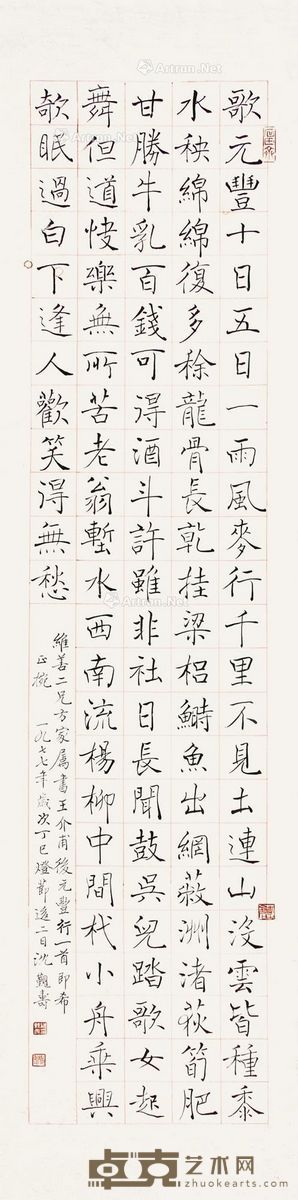 歌元豐十日五日一雨風麥行千里不見土連山沒雲皆種黍
水秧綿綿復多稌龍骨長乾挂梁梠鰣魚出網蔽洲渚荻筍肥
甘勝牛乳百錢可得酒斗許雖非社日長聞鼓吳兒踏歌女起
舞但道快樂無所苦老翁塹水西南流楊柳中間杙小舟乘興
欹眠過白下逢人歡笑得無愁
維善二兄方家属書王介甫後元豐行一首即希
正捥
一九七七年歲次丁巳燈節後二日沈觐壽
Artron.Net
Artron.Net
Artron.Net
卓克艺术网
www.zhuokearts.com